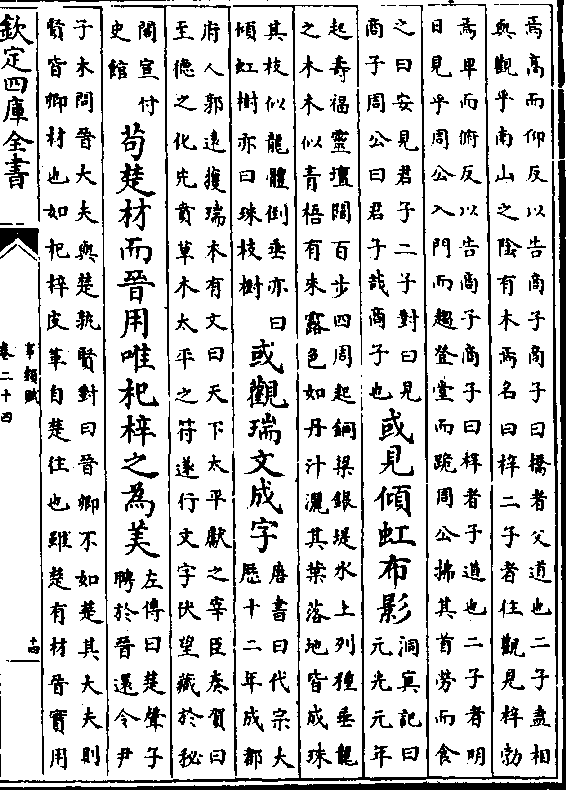 焉高而仰反以告商子商子曰橋者父道也二子盍相
與觀乎南山之陰有木焉名曰梓二子者往觀見梓勃
焉卑而俯反以告商子商子曰梓者子道也二子者明
日見乎周公入門而趨登堂而跪周公拂其首勞而食
之曰安見君子二子對曰見
商子周公曰君子哉商子也
或見傾虹布影
洞冥記曰
元光元年
起壽福靈壇闊百步四周起銅梁銀堤水上列種垂龍
之木木似青梧有朱露色如丹汁灑其葉落地皆成珠
其枝似龍體倒垂亦曰
傾虹樹亦曰珠枝樹
或觀瑞文成字
唐書曰代宗大
歷十二年成都
府人郭遠獲瑞木有文曰天下太平獻之宰臣奏賀曰
至德之化先賁草木太平之符遂行文字伏望藏於秘
閣宣付
史館
苟楚材而晉用唯杞梓之為美
左傳曰楚聲子
聘於晉還令尹
子木問晉大夫與楚孰賢對曰晉卿不如楚其大夫則
賢皆卿材也如杞梓皮革自楚往也雖楚有材晉實用
欽定四庫全書
事類賦
卷二十四
十四